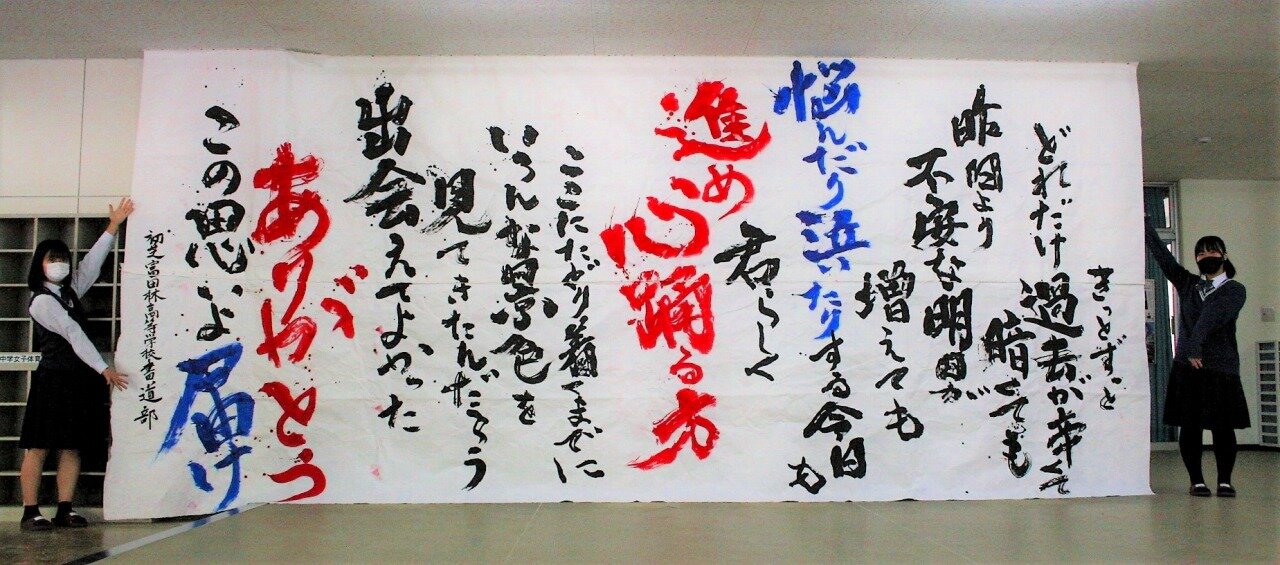 きっとずっと
どれだけ過去が辛くて
暗くても
昨日より
不安な明日が
増えても
悩んだり泣いたりする今日も
君らしく
進め心踊る方
ここにたどり着くまでに
いろんな景色を
見てきたんだろう
出会えてよかった
ありがとう
この思いよ届け
初芝富田林高等学校書道部
中学女子体育